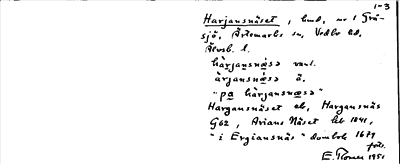 1-3
Harjansnäset, hmd, nr 1 Grä-
sjö, Ärtemarks sn, Vedbo hd,
Älvsb. l.
härjansnæ̀sə vanl.
ärjansnæ̀sə ä.
"pa härjansnæsə"
Hargansnäset eb, Hargansnäs
G62, Arians Näset hfl 1841,
"i Ergiansnäs" dombok 1679
förts.
E. 1951